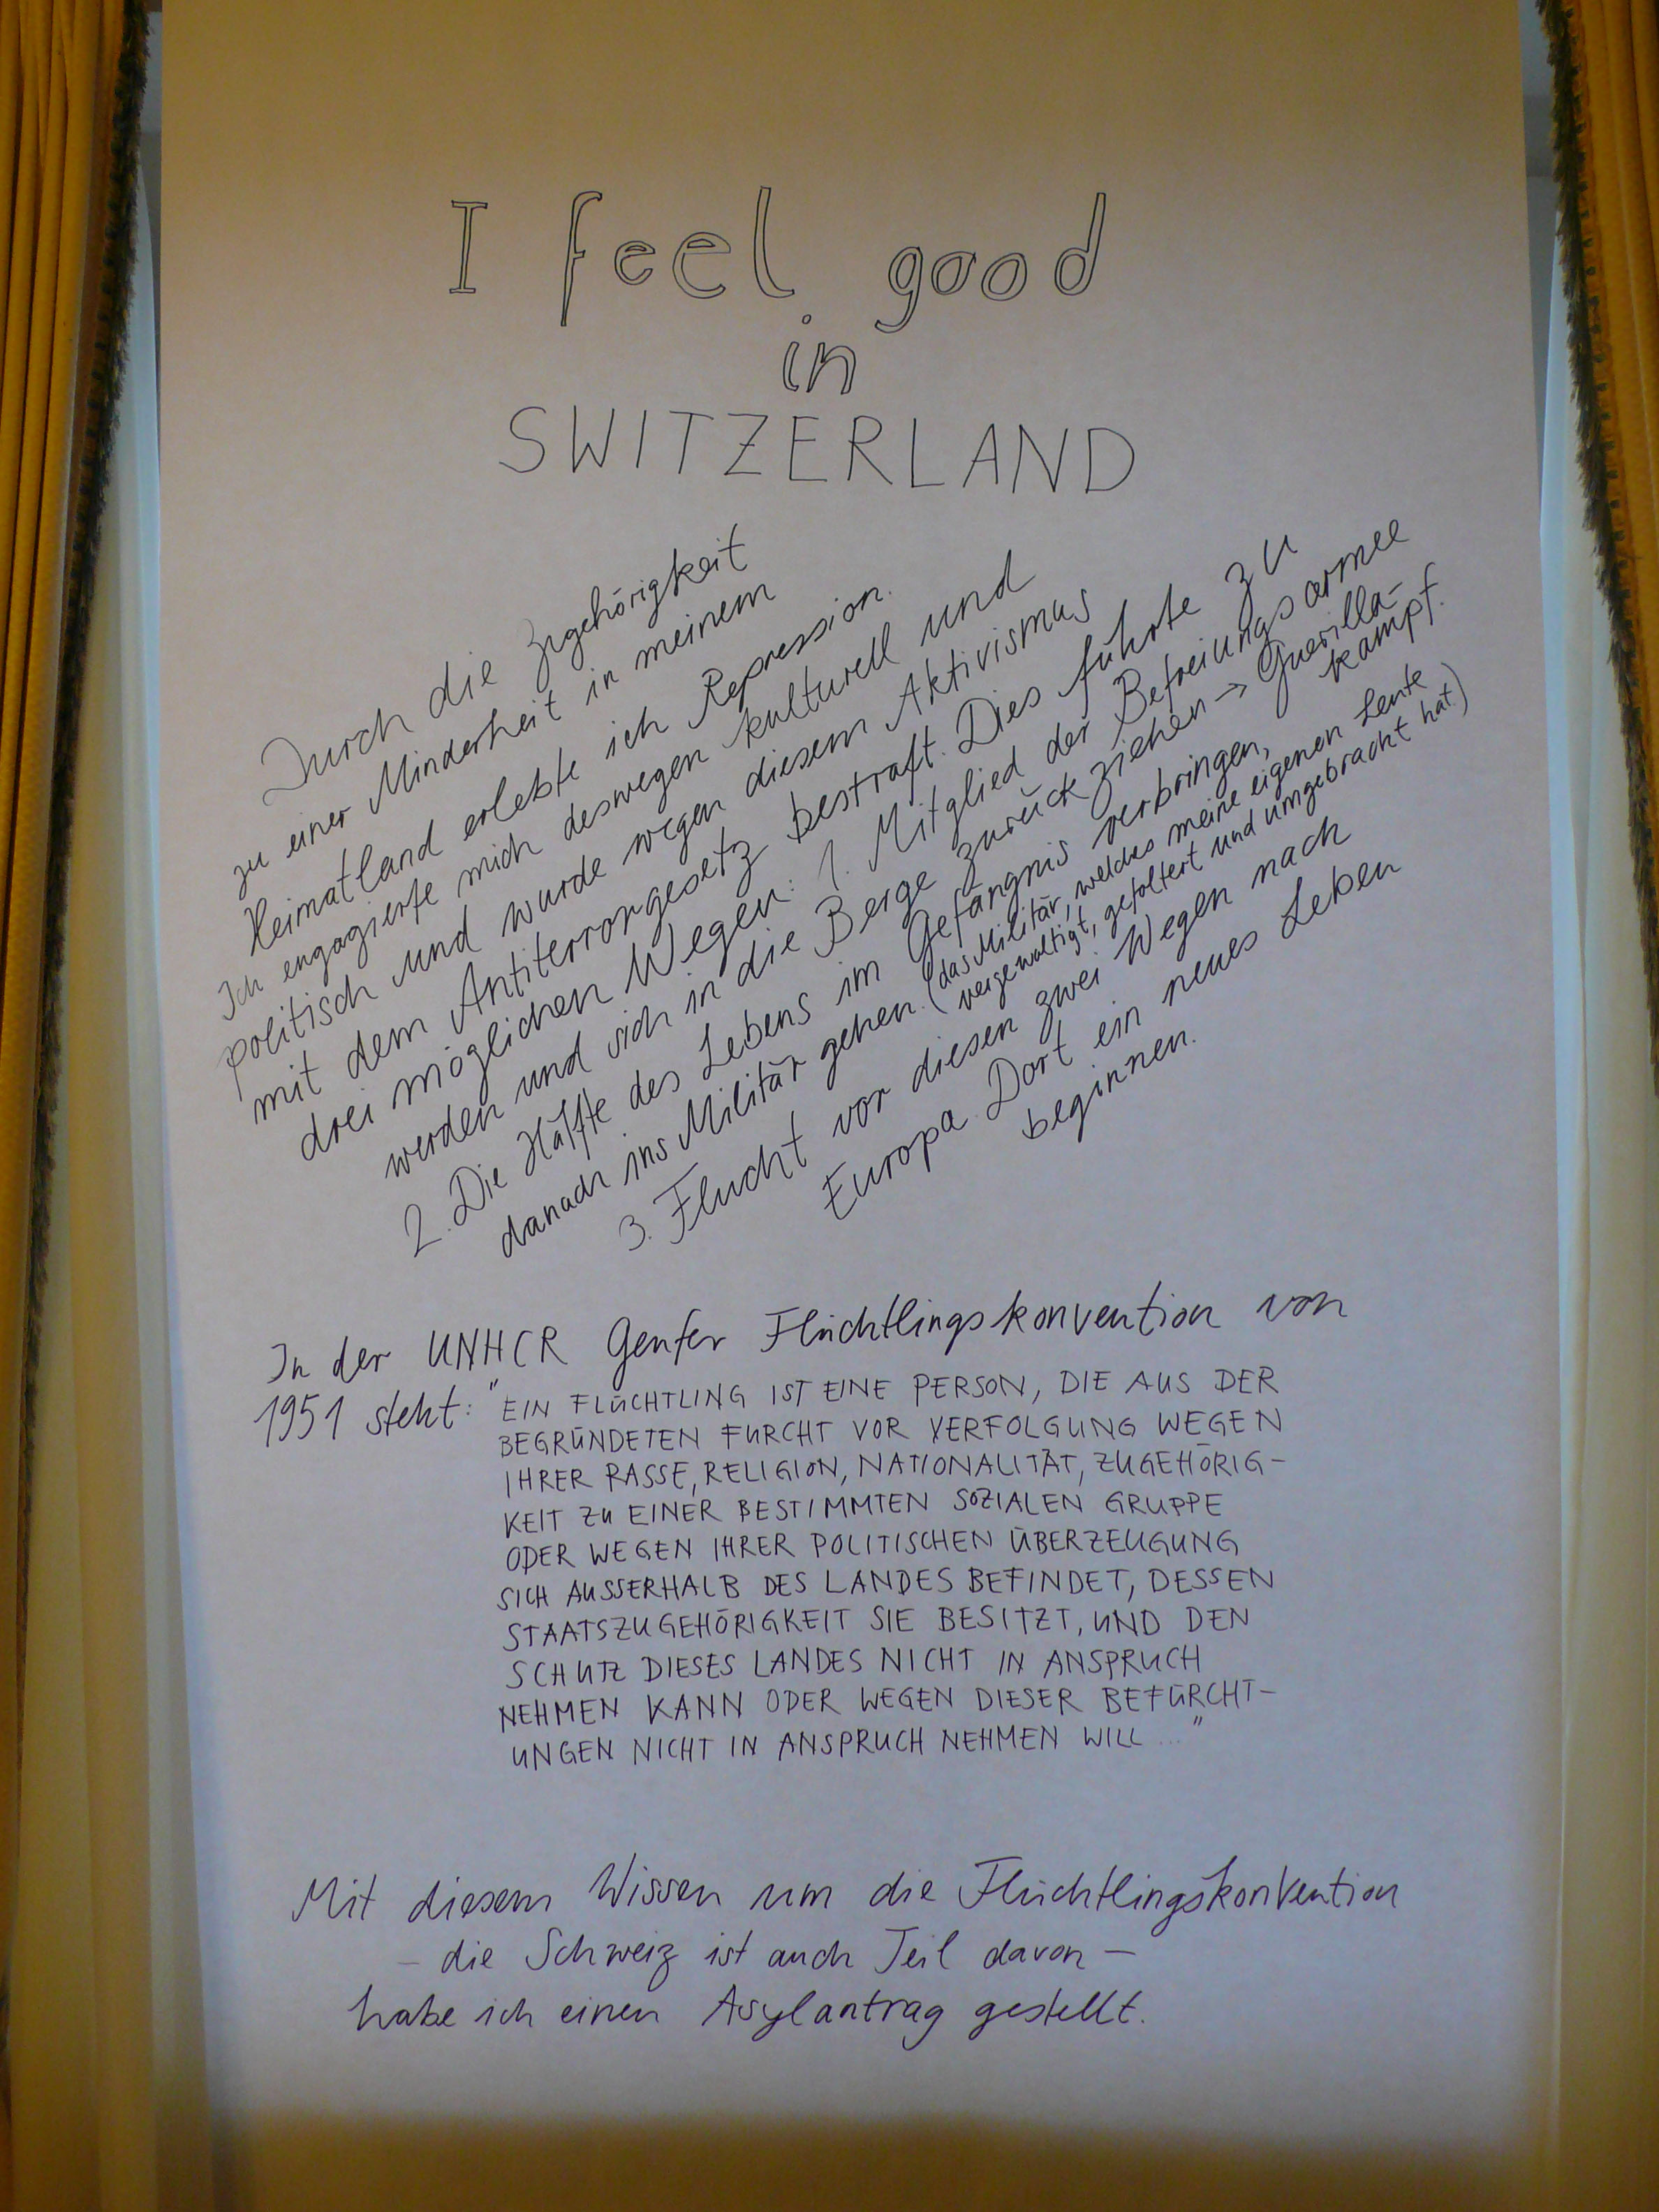 I feel good
in
SWITZERLAND
Durch die Zugehörigkeit
zu einer Minderheit in meinem
Heimatland erlebte ich Repression.
Ich engagierte mich deswegen kulturell und
politisch und wurde wegen diesem Aktivismus
mit dem Antiterrorgesetz bestraft. Dies führte zu
drei möglichen Wegen: 1. Mitglied der Befreiungsarmee
werden und sich in die Berge zurück ziehen → Guerilla-
kampf.
2. Die Hälfte des Lebens im Gefängnis verbringen,
danach ins Militär gehen. (das Militär, welches meine eigenen Leute
vergewaltigt, gefoltert und umgebracht hat.)
3. Flucht vor diesen zwei Wegen nach
Europa. Dort ein neues Leben
beginnen.
In der UNHCR Genfer Flüchtlingskonvention von
1951 steht: "EIN FLÜCHTLING IST EINE PERSON, DIE AUS DER
BEGRÜNDETEN FURCHT VOR VERFOLGUNG WEGEN
IHRER RASSE, RELIGION, NATIONALITÄT, ZUGEHÖRIG-
KEIT ZU EINER BESTIMMTEN SOZIALEN GRUPPE
ODER WEGEN IHRER POLITISCHEN ÜBERZEUGUNG
SICH AUSSERHALB DES LANDES BEFINDET, DESSEN
STAATSZUGEHÖRIGKEIT SIE BESITZT, UND DEN
SCHUTZ DIESES LANDES NICHT IN ANSPRUCH
NEHMEN KANN ODER WEGEN DIESER BEFÜRCHT-
UNGEN NICHT IN ANSPRUCH NEHMEN WILL ..."
Mit diesem Wissen um die Flüchtlingskonvention
– die Schweiz ist auch Teil davon –
habe ich einen Asylantrag gestellt.